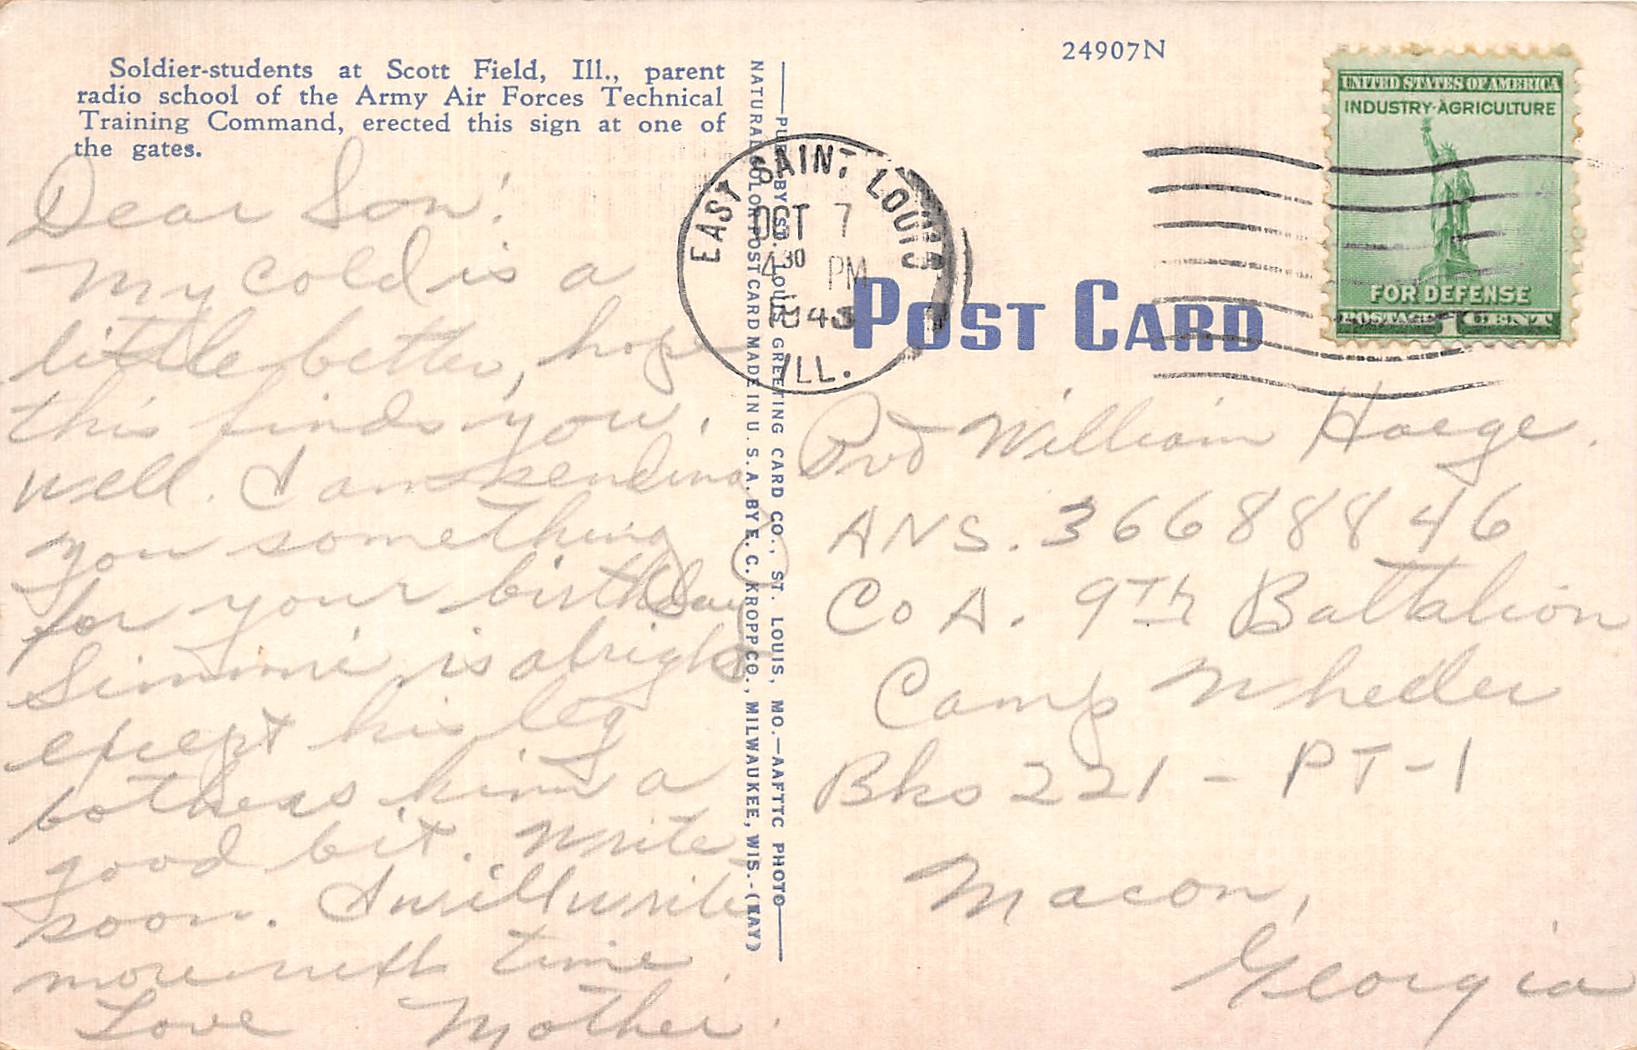 Soldier-students at Scott Field, Ill., parent
radio school of the Army Air Forces Technical
Training Command, erected this sign at one of
the gates.
Dear Son!
My cold is a
little better, hope
this finds you,
well. I am sending
you something
for your birthday
Simmie is alright
except his leg
bothers him a
good bit. Write
soon. I will write
more next time.
Love Mother.
PUB. BY ST. LOUIS GREETING CARD CO., ST. LOUIS, MO.—AAFTTC PHOTO
NATURAL COLOR POST CARD MADE IN U. S. A. BY E. C. KROPP CO., MILWAUKEE, WIS.-(KAY)
24907N
EAST SAINT LOUIS
OCT 7
4 30 PM
1943
ILL.
UNITED STATES OF AMERICA
INDUSTRY·AGRICULTURE
FOR DEFENSE
POSTAGE 1 CENT
POST CARD
Pvt William Haege.
ANS. 36688846
Co A. 9th Battalion
Camp Wheeler
Bks 221 - PT-1
Macon,
Georgia